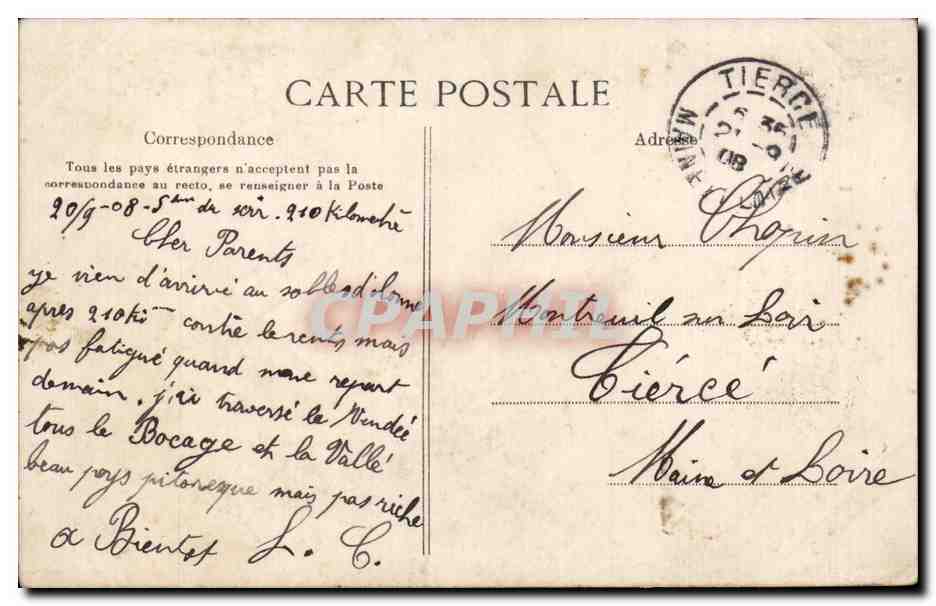 CARTE POSTALE
Correspondance
Tous les pays étrangers n'acceptent pas la
correspondance au recto, se renseigner à la Poste
20/9-08-5 du soir. 210 Kilometre
Cher Parents
je vien d'arrivé au sables d'olonne
apres 210 Ki contre le vents mais
pas fatigué quand meme repart
demain. j'ai traversé le Vendée
tous le Bocage et la Vallé
beau pays pitoresque mais pas riche
a Bientot L. C.
Adresse
TIERCE
MAINE-ET-LOIRE
08
Monsieur Chopin
Montreuil sur Loir
Tiércé
Maine et Loire
CPAPHIL